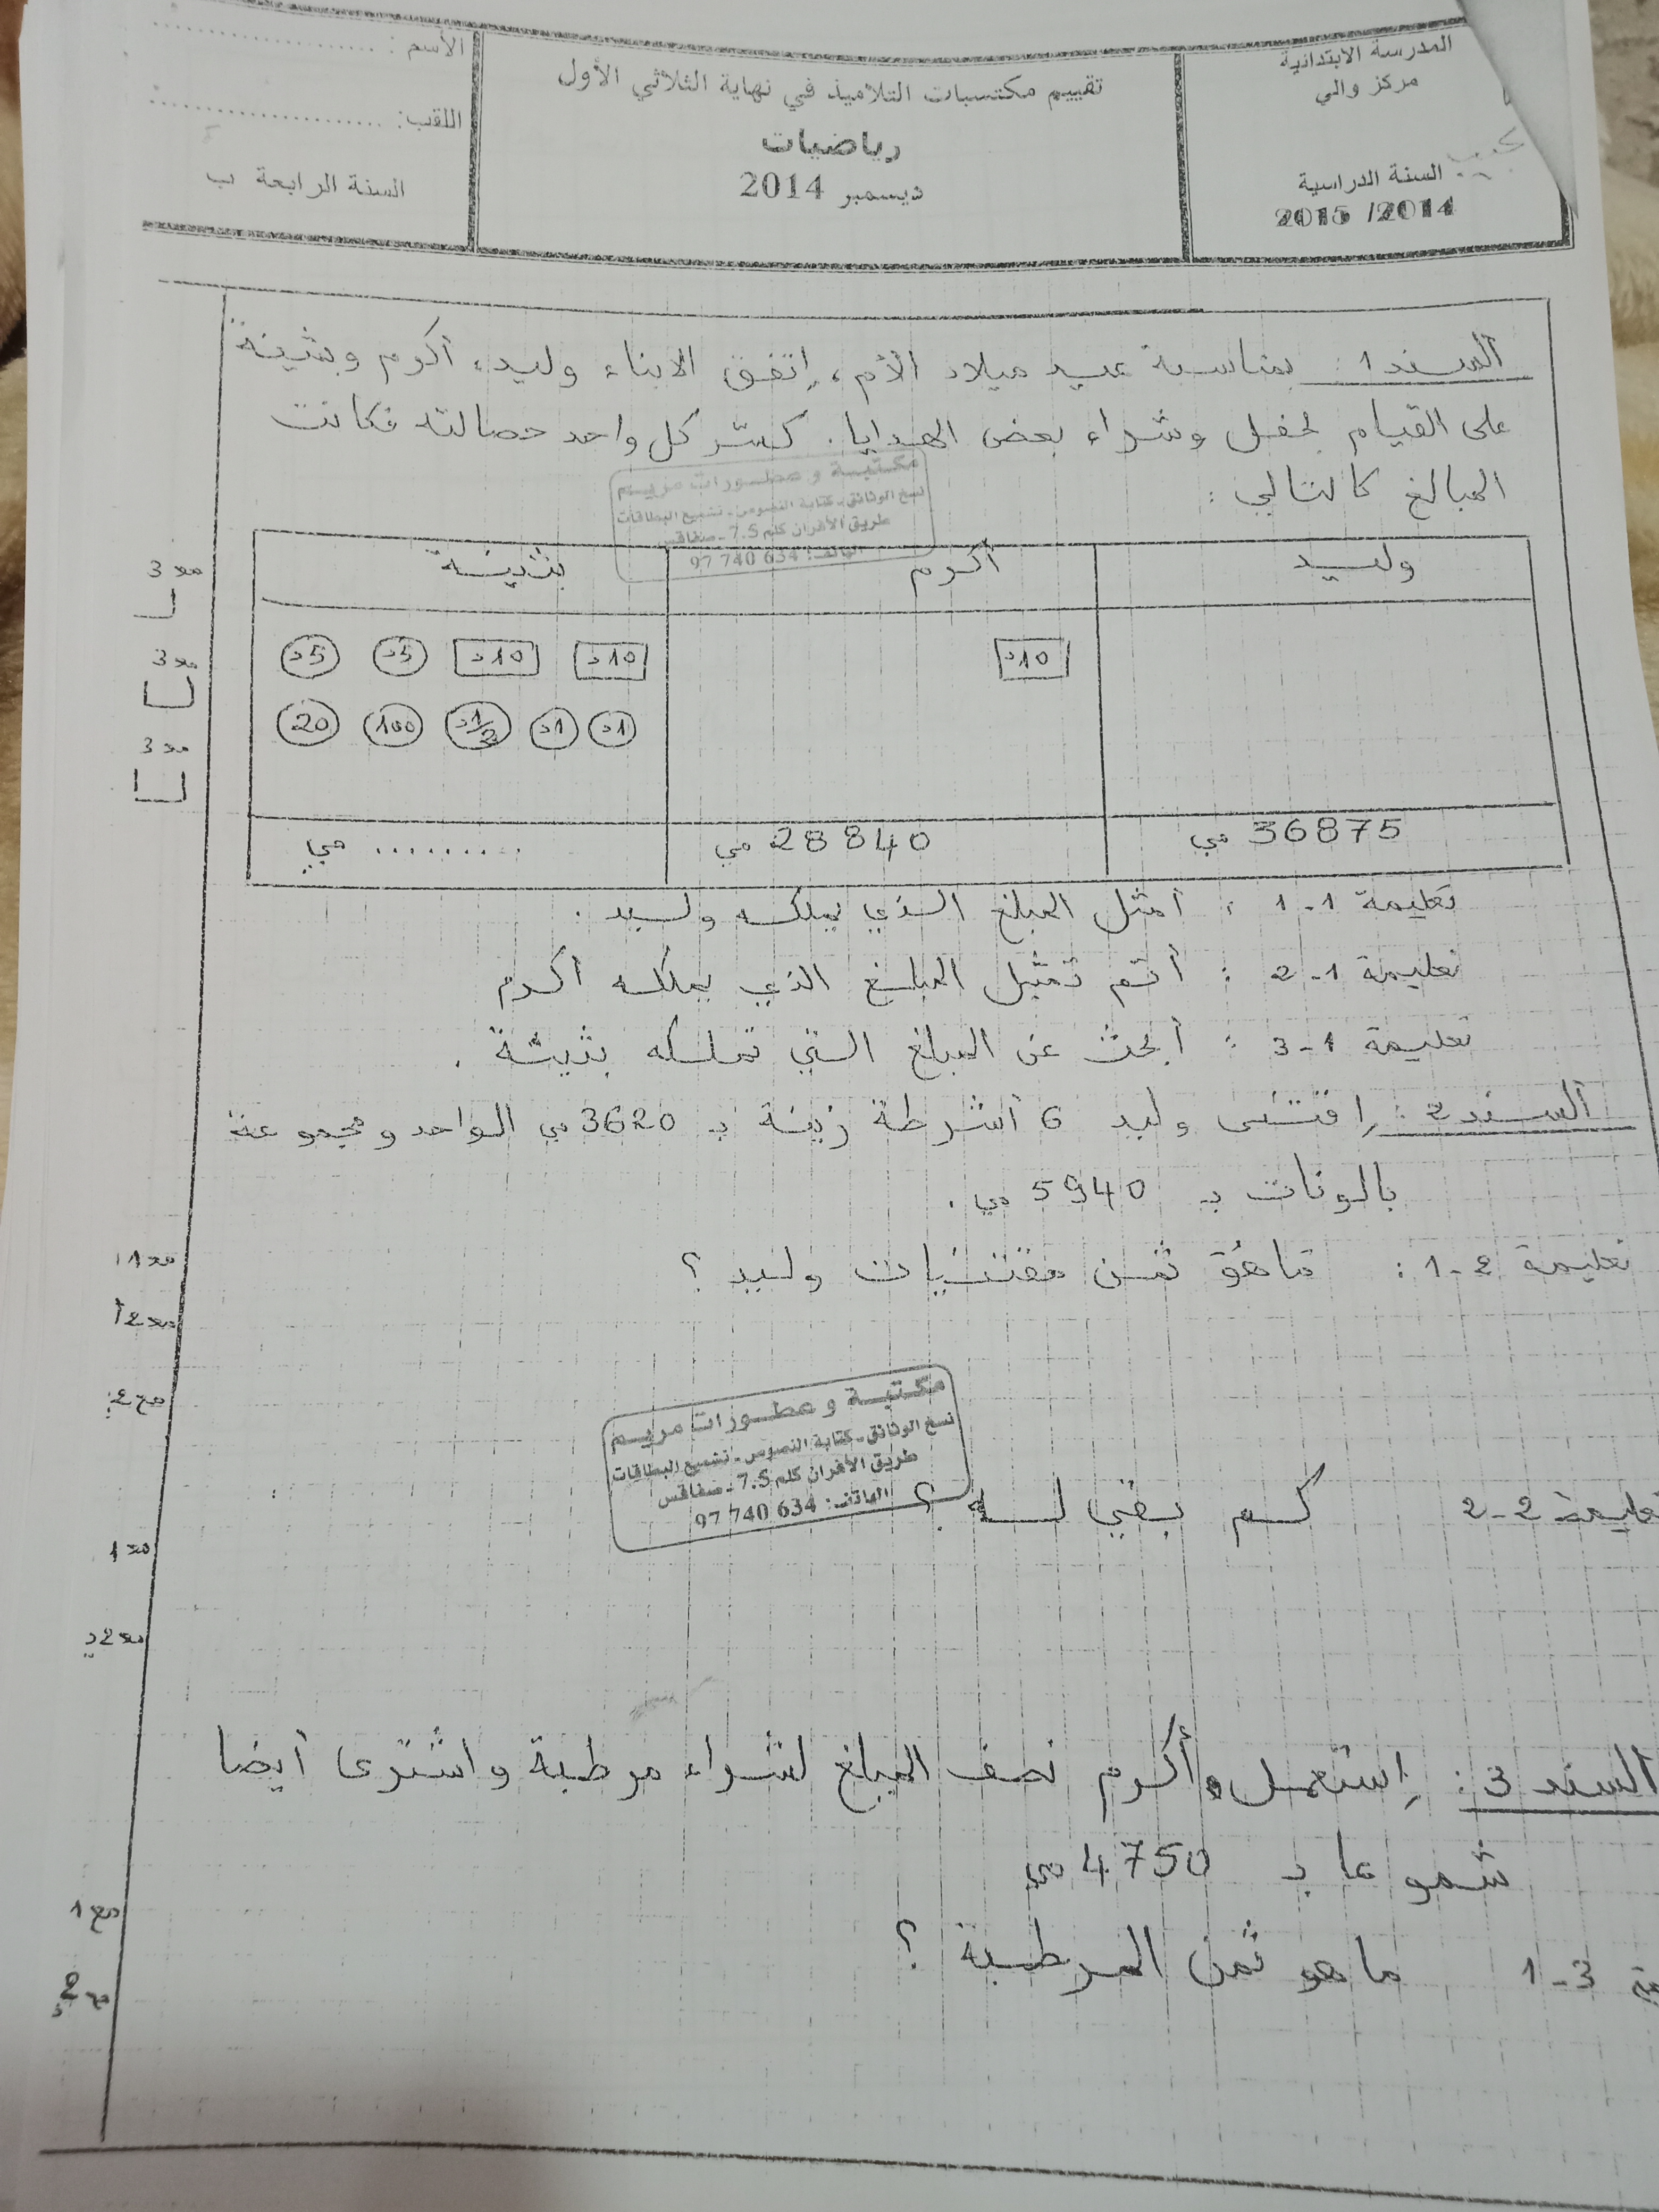 المدرسة الابتدائية
مركز والي
السنة الدراسية
2015 /2014
تقييم مكتسبات التلاميذ في نهاية الثلاثي الأول
رياضيات
ديسمبر 2014
الأسم : ....................
اللقب: ....................
السنة الرابعة ب
السند 1 : بمناسبة عيد ميلاد الأم، إتفق الابناء وليد، أكرم وبثينة
على القيام بحفل وشراء بعض الهدايا. كسّر كل واحد حصالته فكانت
المبالغ كالتالي :
مكتبة و عطورات مريم
نسخ الوثائق - كتابة النصوص - تشميع البطاقات
طريق الأفران كلم 7.5 - صفاقس
الهاتف: 634 740 97
وليد
أكرم
بثينة
10د
10د 10د 5د 5د
1د 1د 1/2د 100 20
36875 مي
28840 مي
......... مي
مع 3
مع 3
مع 3
تعليمة 1-1 : أمثل المبلغ الذي يملكه وليد .
تعليمة 1-2 : أتمم تمثيل المبلغ الذي يملكه أكرم
تعليمة 1-3 : أبحث عن المبلغ التي تملكه بثينة .
السند 2 : إقتنى وليد 6 أشرطة زينة بـ 3620 مي الواحد ومجموعة
بالونات بـ 5940 مي .
تعليمة 2-1 : ما هو ثمن مقتنيات وليد ؟
مع 1
مع 2
مع 2
مكتبة و عطورات مريم
نسخ الوثائق - كتابة النصوص - تشميع البطاقات
طريق الأفران كلم 7.5 - صفاقس
الهاتف: 634 740 97
تعليمة 2-2 كم بقي له ؟
مع 1
مع 2
السند 3 : إستعمل أكرم نصف المبلغ لشراء مرطبة واشترى أيضا
شموعا بـ 4750 مي
3-1 ما هو ثمن المرطبة ؟
مع 1
مع 2